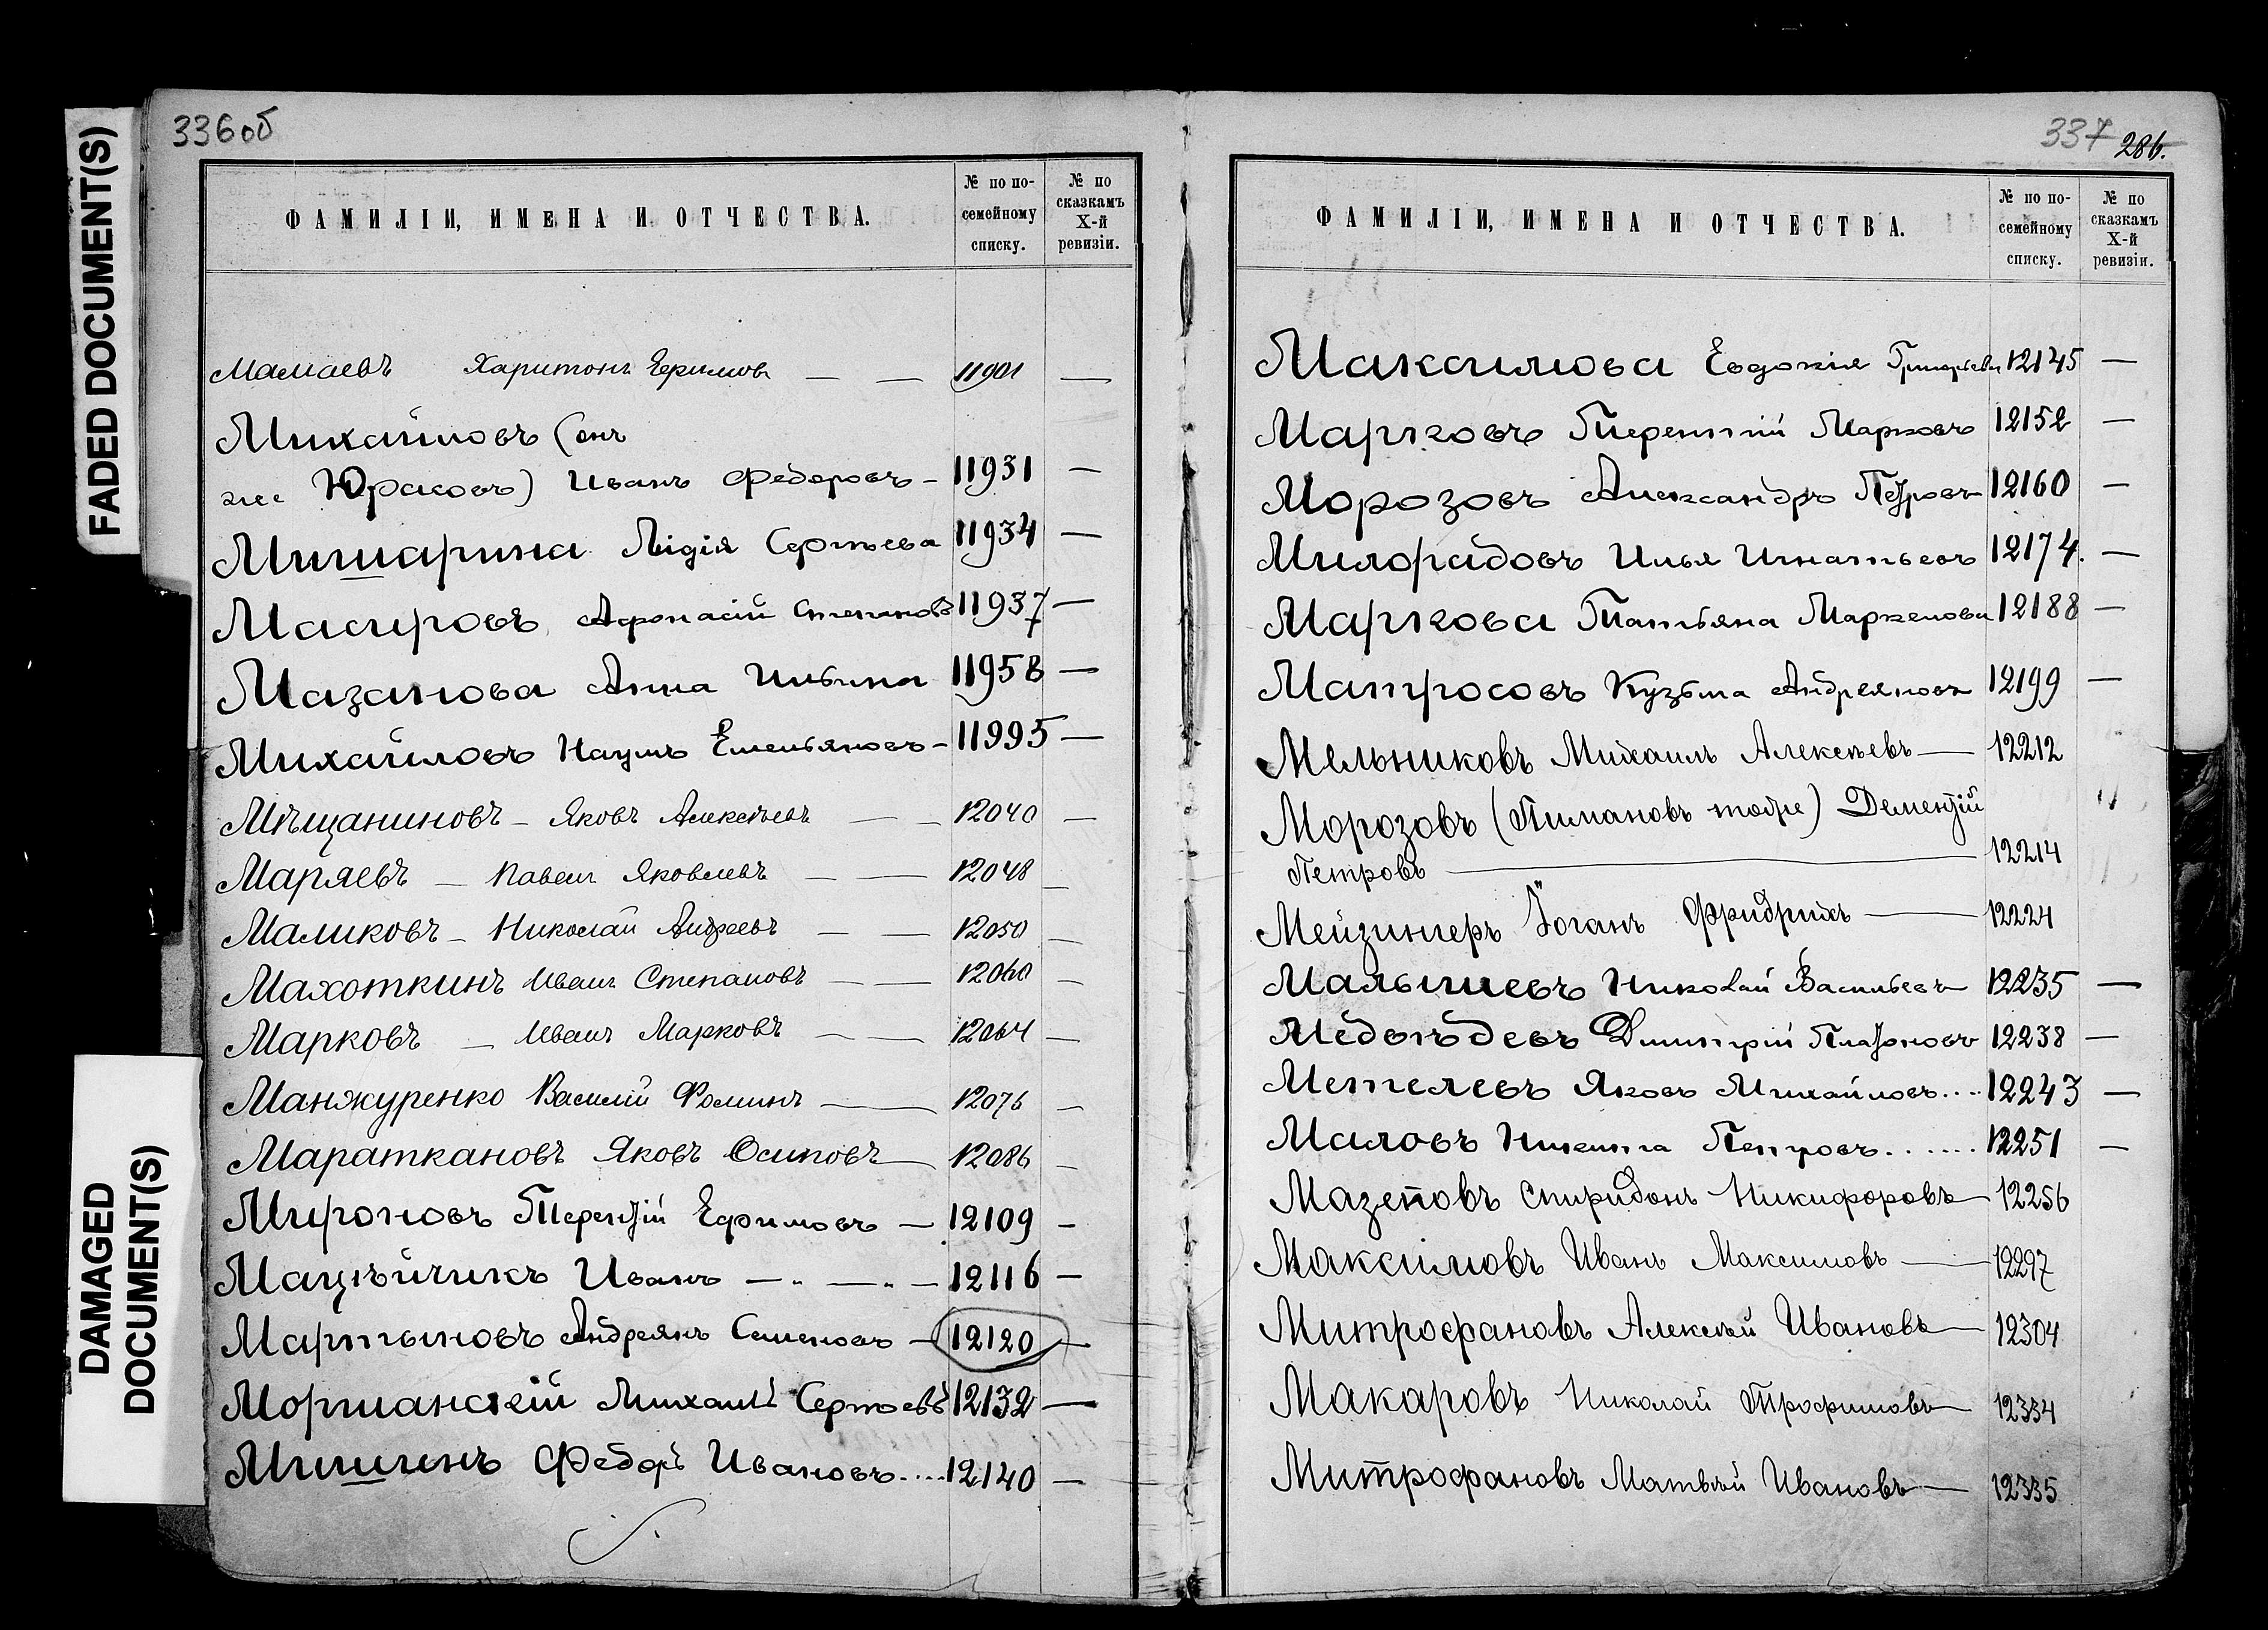 FADED DOCUMENT(S)
DAMAGED
DOCUMENT(S)
336об
ФАМИЛІИ, ИМЕНА И ОТЧЕСТВА.
№ по по-
семейному
списку.
№ по
сказкамъ
X-й
ревизіи.
Мамаевъ Харитонъ Ефимовъ — — 11901 —
Михайловъ (онъ
же Юраковъ) Иванъ Федоровъ - 11931 —
Мишарина Лидія Сергѣева 11934 —
Масыровъ Афонасій Степановъ 11937 —
Мазанова Анна Ильина 11958 —
Михайловъ Наумъ Емельяновъ - 11995 —
Мѣщаниновъ - Яковъ Алексѣевъ — - 12040 —
Маряевъ — Павелъ Яковлевъ — — 12048 —
Маликовъ - Николай Андреевъ — — 12050 —
Махоткинъ Иванъ Степановъ — — 12060 —
Марковъ — Иванъ Марковъ — — 12064 —
Манжуренко Василій Фоминъ — 12076 —
Мараткановъ Яковъ Осиповъ — 12086 —
Мироновъ Терентій Ефимовъ — 12109 —
Мацѣйчикъ Иванъ — „ — „ — 12116 —
Мартыновъ Андреянъ Семеновъ — 12120 —
Моршанскій Михаилъ Сергѣевъ 12132 —
Мишинъ Федоръ Ивановъ .... 12140 —
337 286.
ФАМИЛІИ, ИМЕНА И ОТЧЕСТВА.
№ по по-
семейному
списку.
№ по
сказкамъ
X-й
ревизіи.
Максимова Евдокія Григорьева 12145 —
Марковъ Терентій Марковъ 12152 —
Морозовъ Александръ Петровъ 12160 —
Милорадовъ Илья Игнатьевъ 12174. —
Маркова Татьяна Маркелова 12188 —
Матросовъ Кузьма Андреяновъ 12199 —
Мельниковъ Михаилъ Алексѣевъ — 12212
Морозовъ (Пимановъ тоже) Дементій
Петровъ — 12214
Мейзингеръ Іоганъ Фридрихъ — 12224
Малышевъ Николай Васильевъ 12235 —
Медвѣдевъ Дмитрій Платоновъ 12238 —
Метелевъ Яковъ Михайловъ.... 12243 —
Маловъ Никита Петровъ...... 12251 —
Мазеповъ Спиридонъ Никифоровъ 12256
Максимовъ Иванъ Максимовъ — 12297
Митрофановъ Алексѣй Ивановъ — 12304
Макаровъ Николай Трофимовъ — 12334
Митрофановъ Матвѣй Ивановъ — 12335